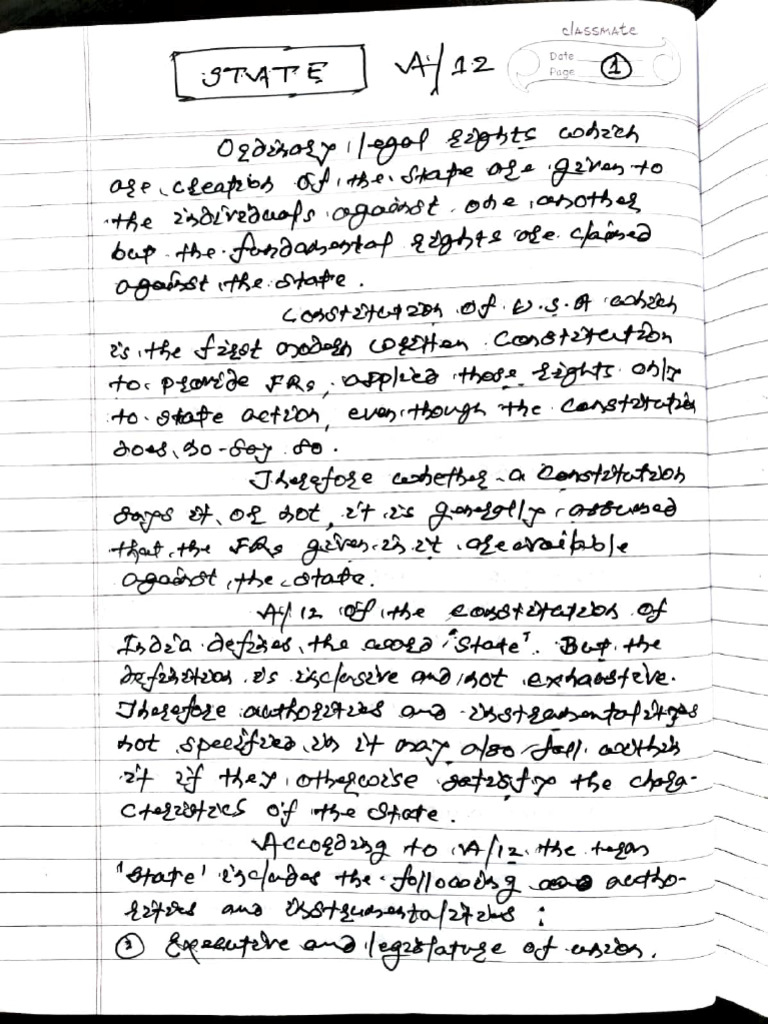 classmate
Date
Page 1
STATE A/12
Ordinary legal rights which
are creation of the State are given to
the individuals against one another
but the fundamental rights are claimed
against the State.
Constitution of U.S.A which
is the first modern written Constitution
to provide FRs, applied those rights only
to State action, even though the Constitution
does no-say so.
Therefore whether a Constitution
says it or not, it is generally assumed
that the FRs given in it are available
against the State.
A/12 of the Constitution of
India defines the word 'State'. But the
definition is inclusive and not exhaustive.
Therefore authorities and instrumentalities
not specified in it may also fall within
it if they otherwise satisfy the chara-
cteristics of the State.
According to A/12 the term
'State' includes the following autho-
rities and instrumentalities :
Executive and legislature of union.